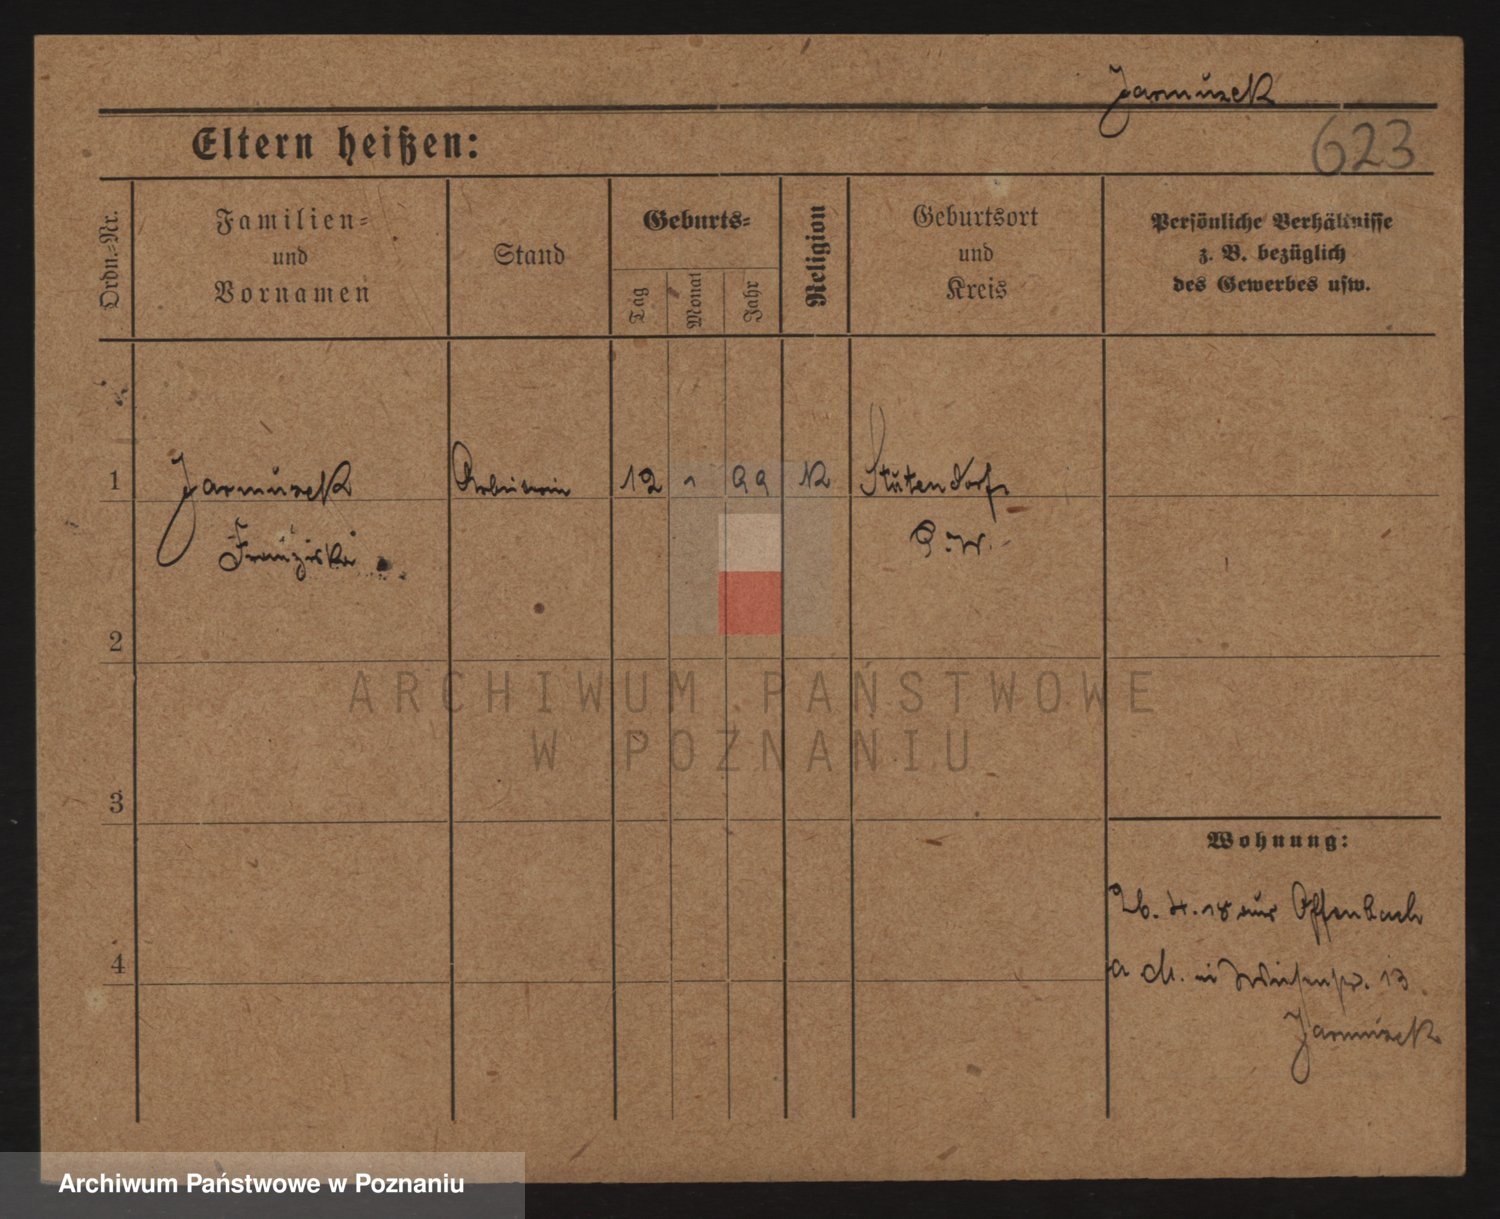 Jarmuzek
623
Eltern heißen:
Ordn.-Nr.
Familien-
und
Vornamen
Stand
Geburts-
Tag
Monat
Jahr
Religion
Geburtsort
und
Kreis
Persönliche Verhältnisse
z. B. bezüglich
des Gewerbes usw.
1
Jarmuzek
Arbeiterin
12
1
99
K
Stutendorf
Franziska
P. W.
2
ARCHIWUM PAŃSTWOWE
W POZNANIU
3
Wohnung:
26. 4. 18 aus Offenbach
4
a M. 13
Jarmuzek
Archiwum Państwowe w Poznaniu